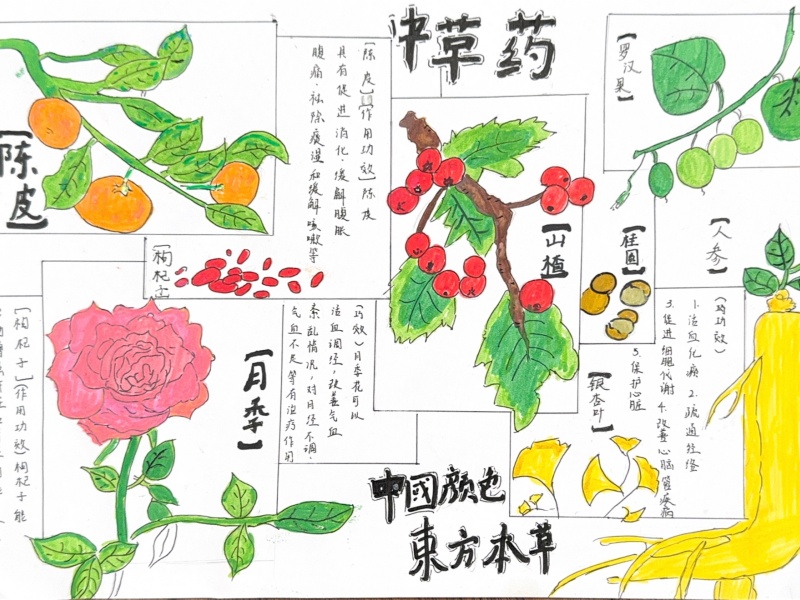 中草药
【陈皮】
【陈皮】【作用功效】陈皮
具有促进消化、缓解腹胀
腹痛、祛除痰湿和缓解咳嗽等
【罗汉果】
【山楂】
【桂圆】
【人参】
【枸杞子】
【月季】
(功效)月季花可以
活血调经,改善气血
紊乱情况,对月经不调、
气血不足等有治疗作用
【枸杞子】(作用功效)枸杞子能
【银杏叶】
(功功效)
1.活血化瘀 2.疏通经络
3.促进细胞代谢 4.改善心脑管疾病
5.保护心脏
中國颜色
東方本草